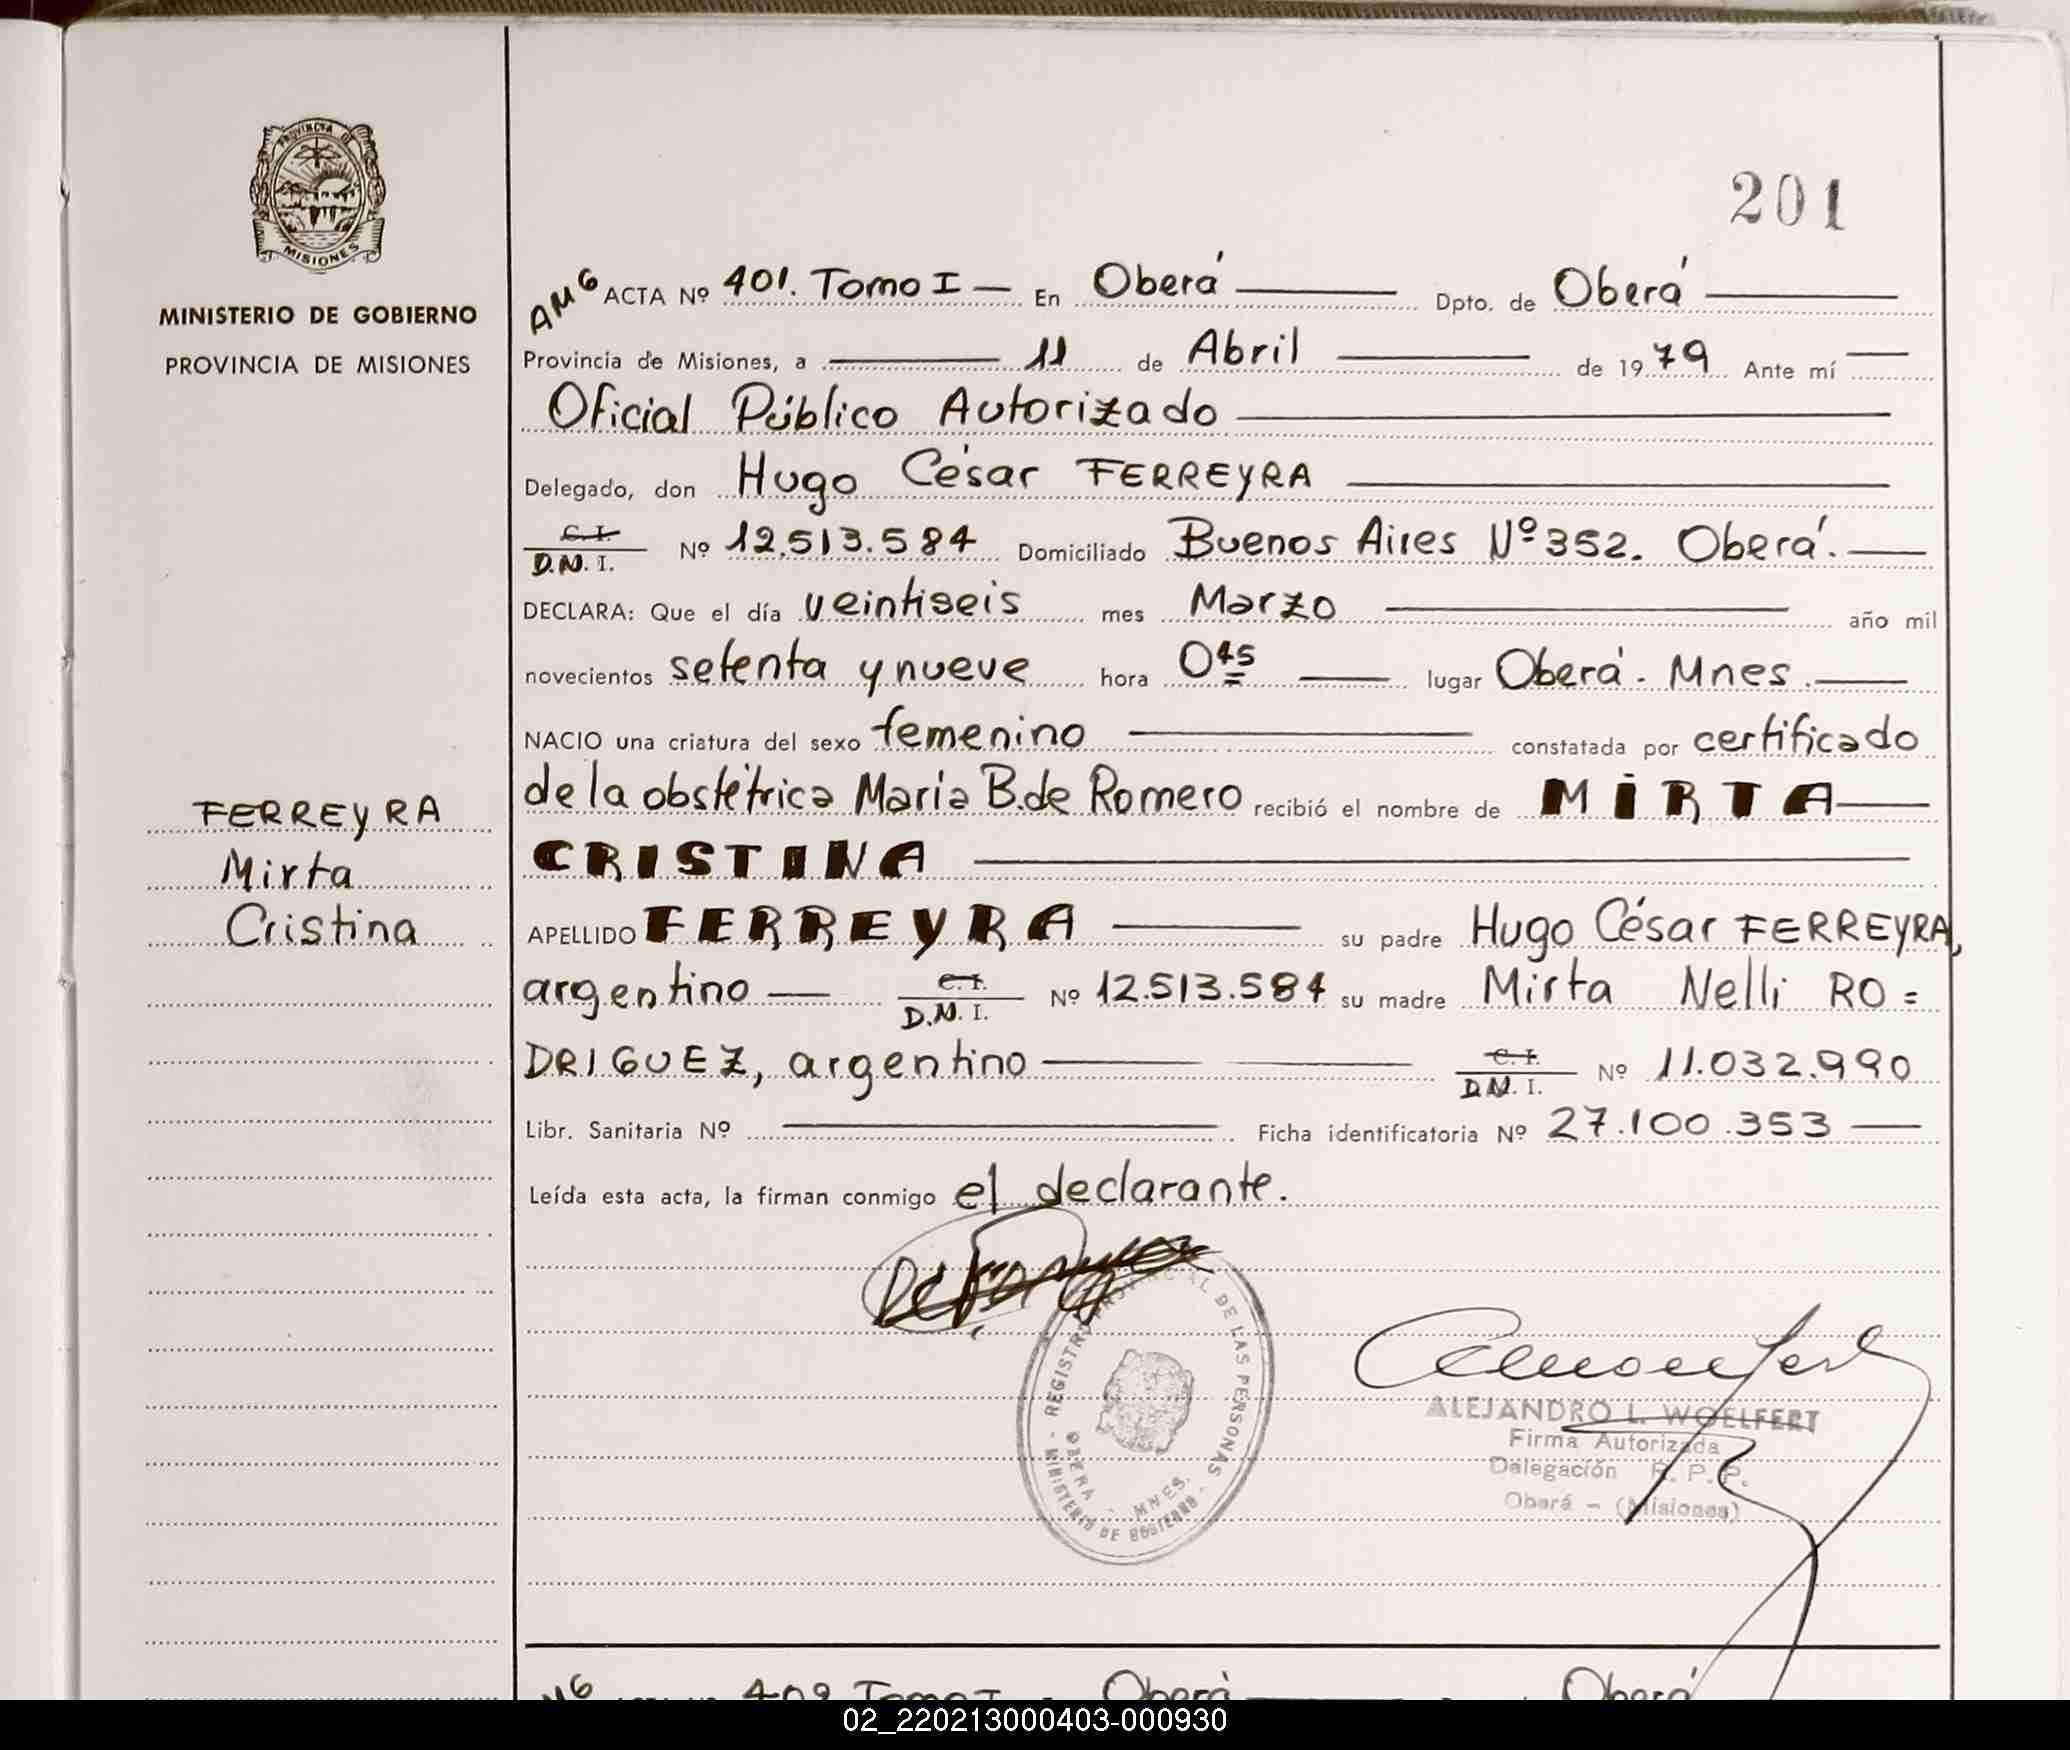 PROVINCIA DE
MISIONES
MINISTERIO DE GOBIERNO
PROVINCIA DE MISIONES
FERREYRA
Mirta
Cristina
201
AMG ACTA Nº 401. Tomo I — En Oberá — Dpto. de Oberá —
Provincia de Misiones, a — 11 de Abril — de 1979 Ante mí —
Oficial Público Autorizado —
Delegado, don Hugo César FERREYRA —
C.I. D.N.I. Nº 12.513.584 Domiciliado Buenos Aires Nº 352. Oberá. —
DECLARA: Que el día veintiseis mes Marzo — año mil
novecientos setenta y nueve hora 0 45 — lugar Oberá. Mnes. —
NACIO una criatura del sexo femenino — constatada por certificado
de la obstétrica Maria B. de Romero recibió el nombre de MIRTA —
CRISTINA —
APELLIDO FERREYRA — su padre Hugo César FERREYRA,
argentino — C.I. D.N.I. Nº 12.513.584 su madre Mirta Nelli RO=
DRIGUEZ, argentino — C.I. D.N.I. Nº 11.032.990
Libr. Sanitaria Nº — Ficha identificatoria Nº 27.100.353 —
Leída esta acta, la firman conmigo el declarante.
REGISTRO PROVINCIAL DE LAS PERSONAS
OBERA - MNES.
MINISTERIO DE GOBIERNO
ALEJANDRO L. WOELFERT
Firma Autorizada
Delegación R. P. P.
Oberá - (Misiones)
Tomo I — Oberá — Oberá
02_220213000403-000930